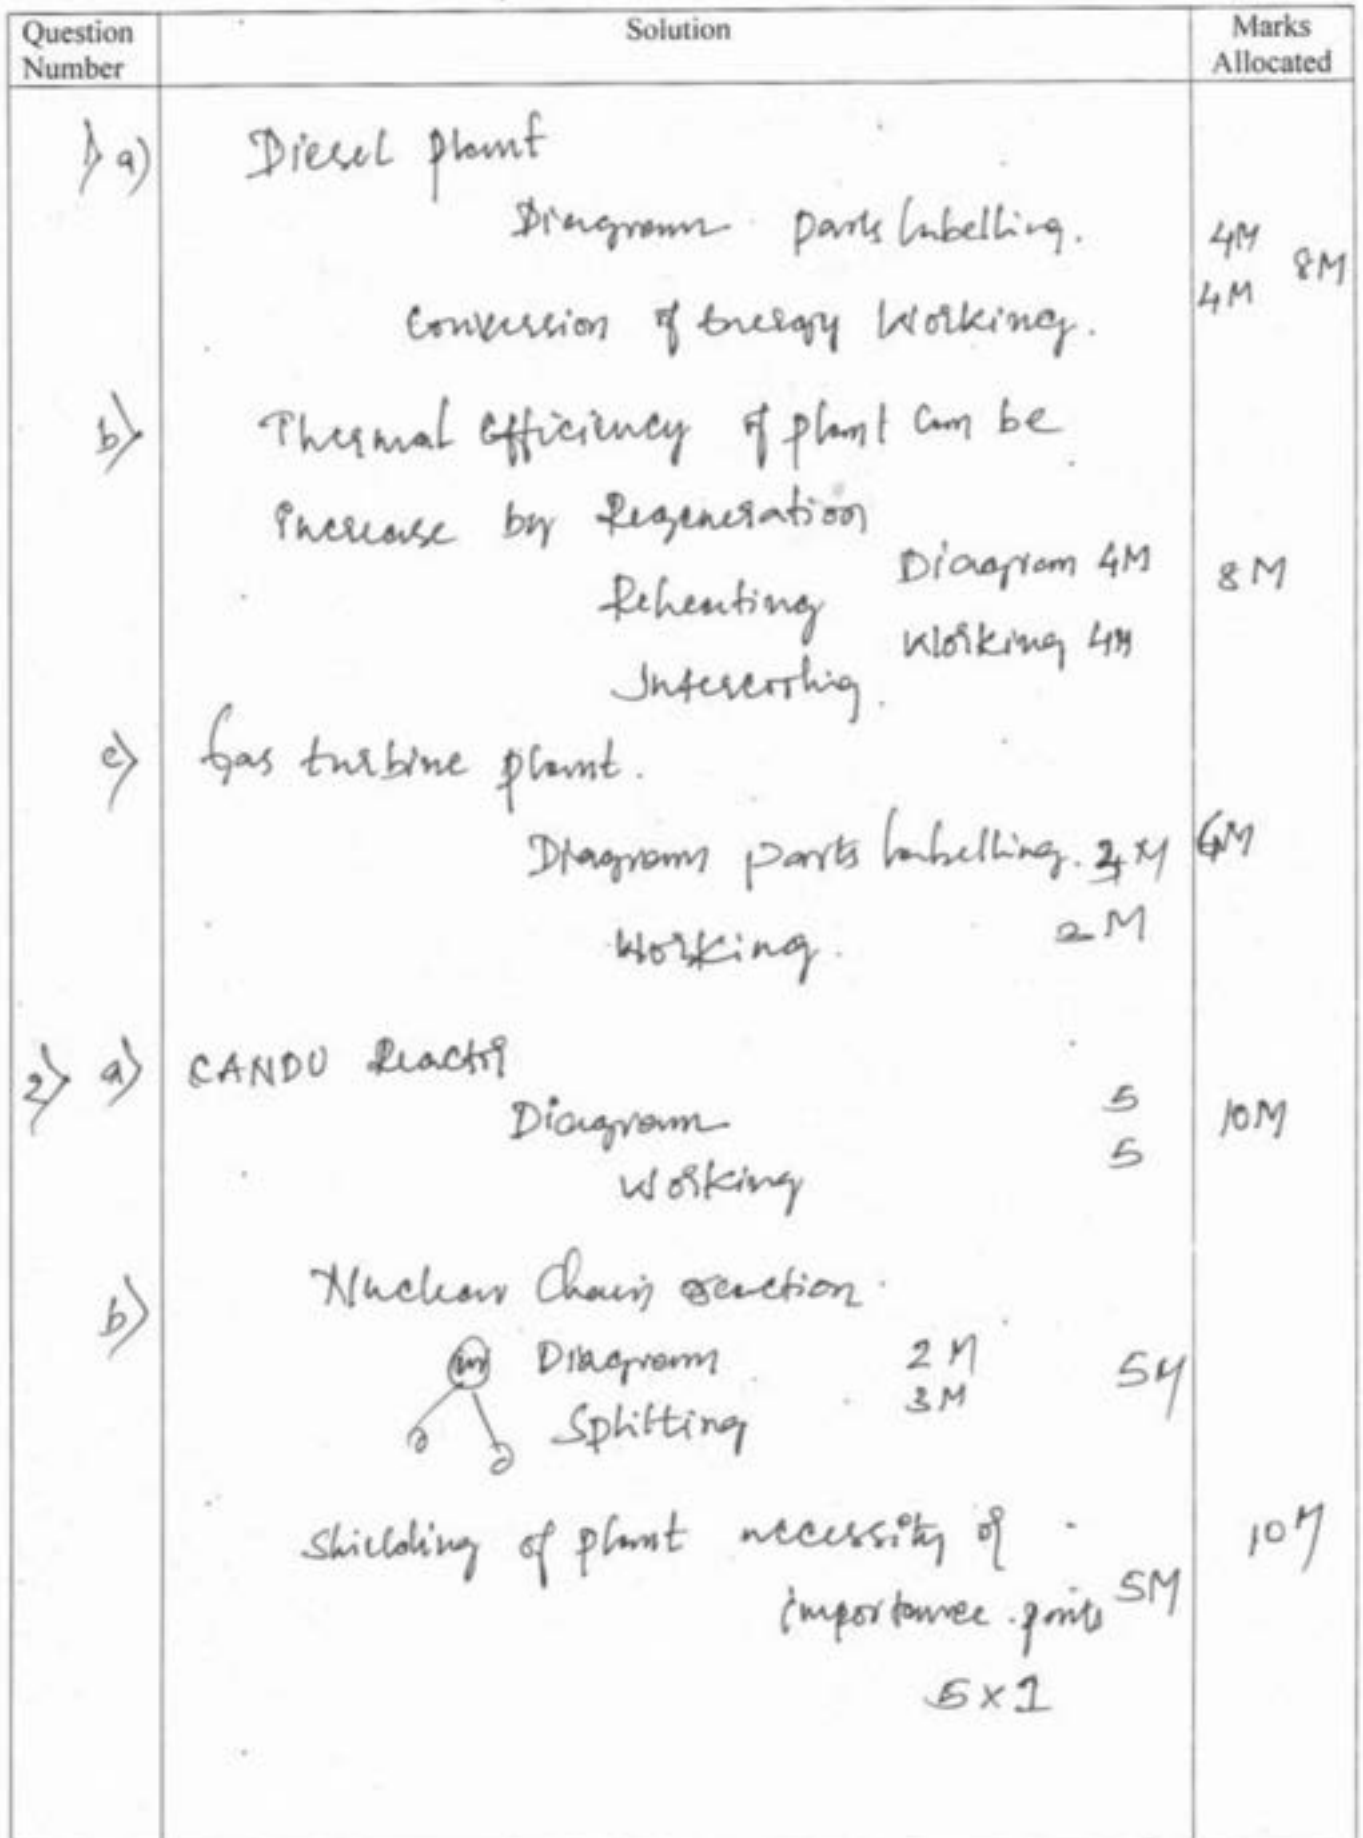 Question Number
Solution
Marks Allocated
1) a) Diesel plant
Diagram parts labelling. 4M
8M
Conversion of Energy Working. 4M
b) Thermal Efficiency of plant can be
increase by Regeneration
Reheating Diagram 4M 8M
Intercooling. Working 4M
c) Gas turbine plant.
Diagram parts labelling. M M
Working. 2M
2) a) CANDU Reactor
Diagram 5 10M
Working 5
b) Nuclear Chain reaction.
Diagram 2M 5M
Splitting 3M
Shielding of plant necessity of 10M
importance. points 5M
5 x 1